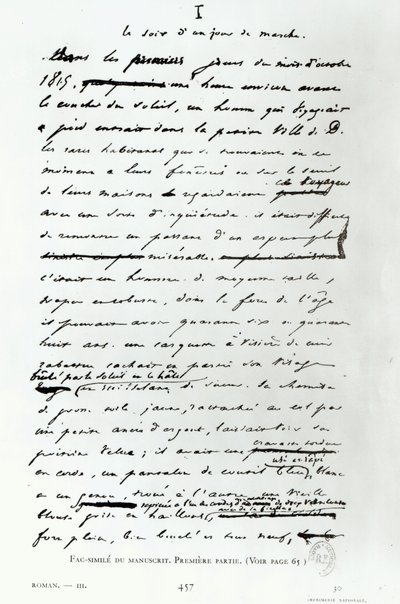 I
le soir d'un jour de marche.
Dans les premiers jours du mois d'octobre
1815, une heure environ avant
le coucher du soleil, un homme qui voyageait
à pied entrait dans la petite ville de D.
les rares habitants qui se trouvaient en ce
moment à leurs fenêtres ou sur le seuil
de leurs maisons regardaient ce voyageur
avec une sorte d'inquiétude. il était difficile
de rencontrer un passant d'un aspect plus
misérable.
c'était un homme de moyenne taille,
trapu et robuste, dans la force de l'âge
il pouvait avoir quarante six ou quarante
huit ans. une casquette à visière de cuir
rabattue cachait en partie son visage
brûlé par le soleil et le hâle
et ruisselant de sueur. sa chemise
de grosse toile jaune, rattachée au col par
une petite ancre d'argent, laissait voir sa
poitrine velue; il avait une cravate tordue
en corde, un pantalon de coutil bleu, usé et râpé, blanc
à un genou, troué à l'autre, une vieille
blouse grise en haillons,
fort plein, bien bouclé et tout neuf,
FAC-SIMILÉ DU MANUSCRIT. PREMIÈRE PARTIE. (VOIR PAGE 65)
ROMAN. — III. 457 30
IMPRIMERIE NATIONALE.